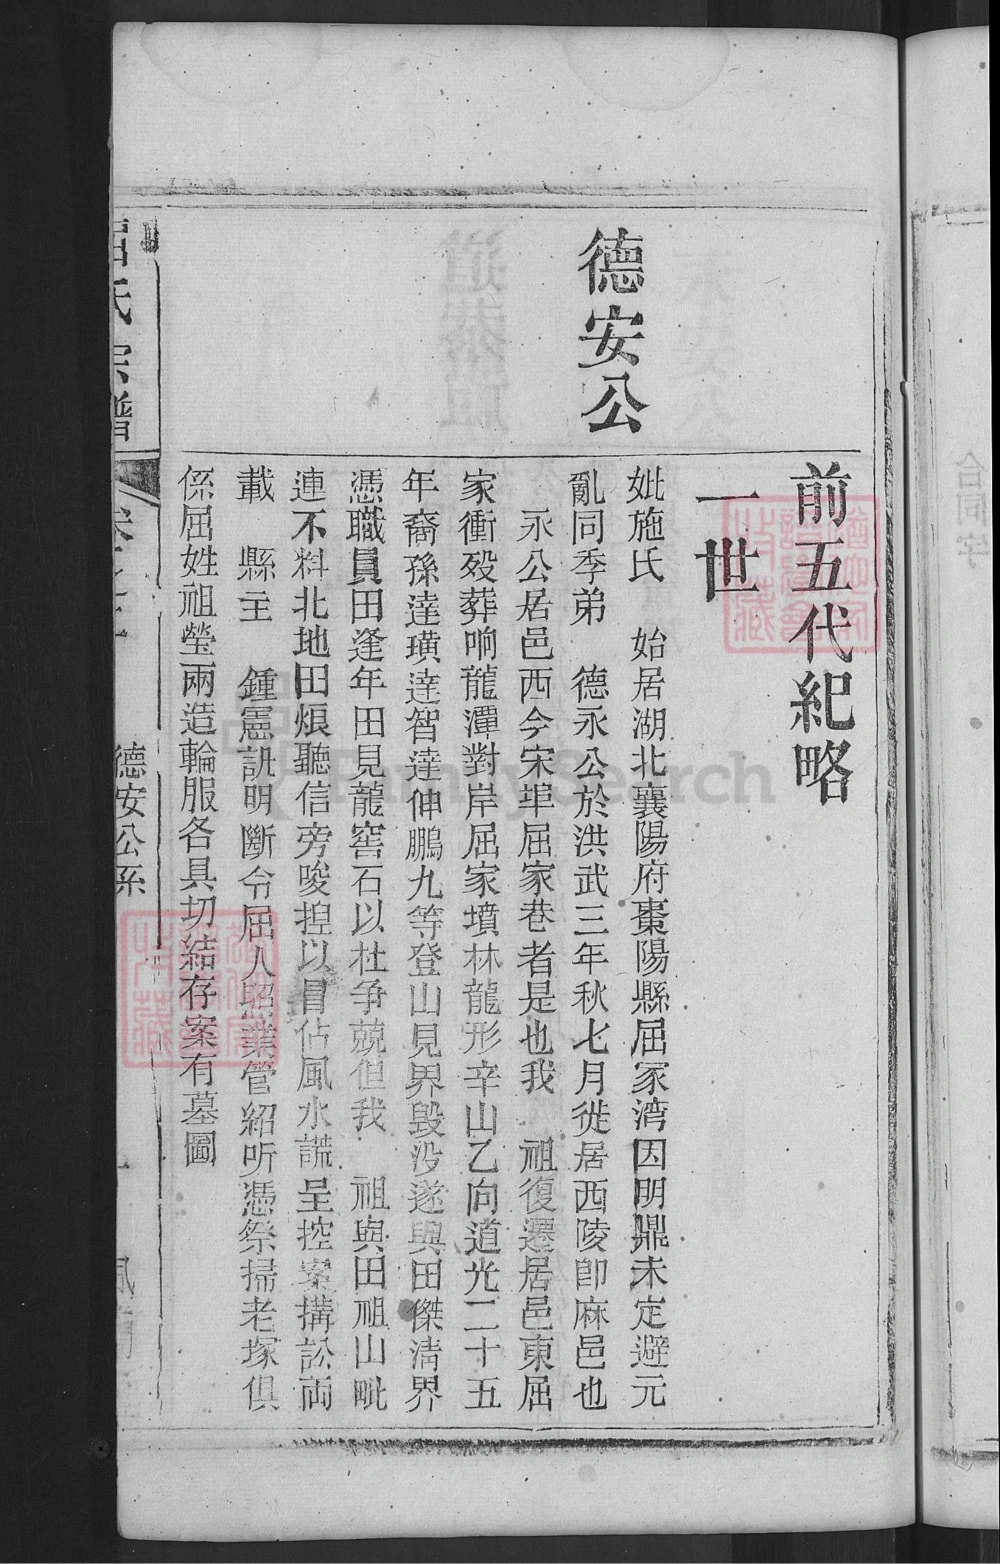 前五代紀略
一世
德安公
妣施氏　始居湖北襄陽府棗陽縣屈家湾因明鼎未定避元
亂同季弟　德永公於洪武三年秋七月徙居西陵即麻邑也
永公居邑西今宋埠屈家巷者是也我　祖復遷居邑東屈
家衝歿葬响龍潭對岸屈家墳林龍形辛山乙向道光二十五
年裔孫達璜達智達伸鵬九等登山見界毀没遂與田傑清界
憑職員田逢年田見龍窖石以杜争兢但我　祖與田祖山毗
連不料北地田烺聽信旁唆揑以冒佔風水謊呈控案搆訟両
載　縣主　鍾憲訊明斷令屈人照業管紹听憑祭掃老塚俱
係屈姓祖瑩兩造輸服各具切結存案有墓圖
屈氏宗譜
德安公系
合同字
FamilySearch